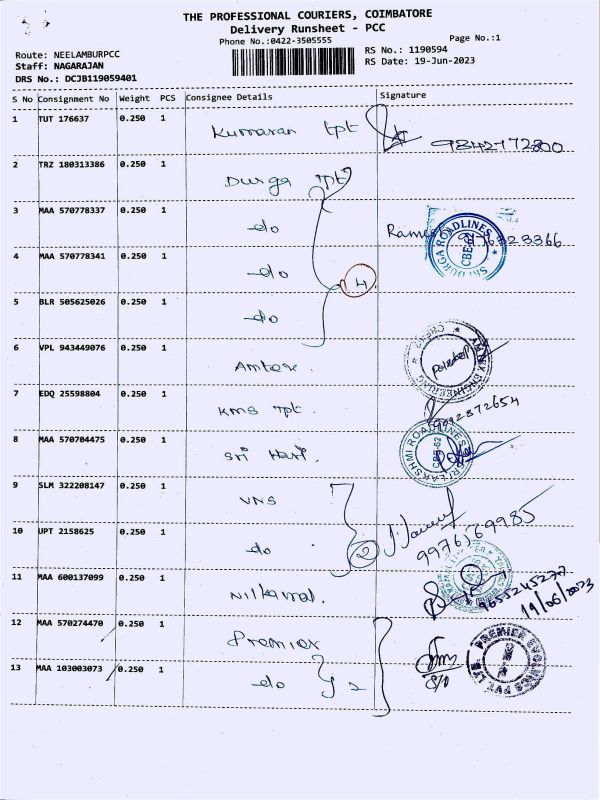 THE PROFESSIONAL COURIERS, COIMBATORE
Delivery Runsheet - PCC
Phone No.:0422-3505555
Page No.:1
Route: NEELAMBURPCC
Staff: NAGARAJAN
DRS No.: DCJB119059401
RS No.: 1190594
RS Date: 19-Jun-2023
S No Consignment No Weight PCS Consignee Details Signature
1 TUT 176637 0.250 1 Kumaran tpt
2 TRZ 180313386 0.250 1 Durga tpt
3 MAA 570778337 0.250 1 do
SRI DURGA ROADLINES CBE-62
4 MAA 570778341 0.250 1 do 4
5 BLR 505625026 0.250 1 do
6 VPL 943449076 0.250 1
ENGINEERING
7 EDQ 25598804 0.250 1 KMS Tpt. 9092872654
8 MAA 570704475 0.250 1 Sri Hari.
SRI LAKSHMI ROADLINES CBE-62
9 SLM 322208147 0.250 1 VNS
10 UPT 2158625 0.250 1 do 2 9976569985
11 MAA 600137099 0.250 1 Nilkamal. 9655245277
19/06/2023
12 MAA 570274470 0.250 1 Premier
PREMIER EVOLVICS PVT LTD
13 MAA 103003073 0.250 1 do 2